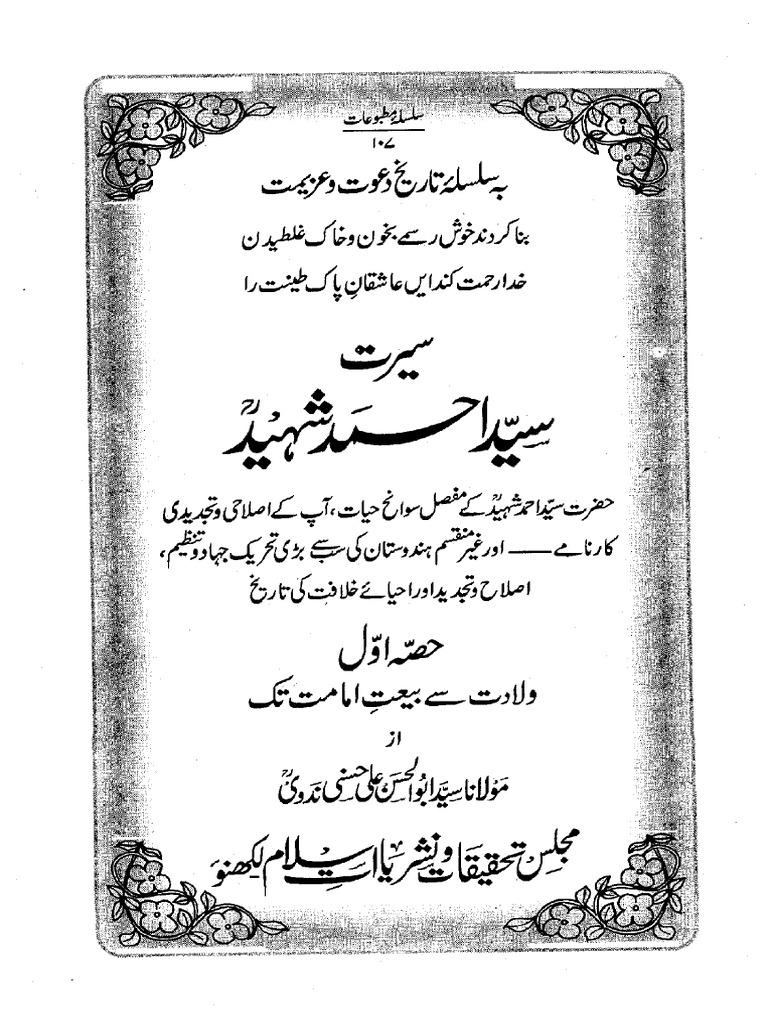 سلسلۂ مطبوعات
۱۰۷
بہ سلسلۂ تاریخ دعوت و عزیمت
بنا کردند خوش رسمے بخون و خاک غلطیدن
خدا رحمت کند ایں عاشقانِ پاک طینت را
سیرت
سیّد احمد شہیدؒ
حضرت سیّد احمد شہیدؒ کے مفصل سوانح حیات، آپ کے اصلاحی و تجدیدی
کارنامے —— اور غیر منقسم ہندوستان کی سب سے بڑی تحریک جہاد و تنظیم،
اصلاح و تجدید اور احیائے خلافت کی تاریخ
حصّہ اوّل
ولادت سے بیعتِ امامت تک
از
مولانا سیّد ابوالحسن علی حسنی ندویؒ
مجلس تحقیقات و نشریات اسلام لکھنؤ